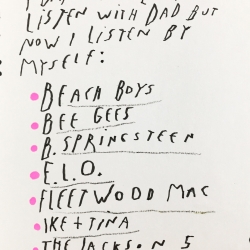 LISTEN WITH DAD BUT
NOW I LISTEN BY
MYSELF:
• BEACH BOYS
• BEE GEES
• B. SPRINGSTEEN
• E.L.O.
• FLEETWOOD MAC
• IKE + TINA
• THE JACKSON 5